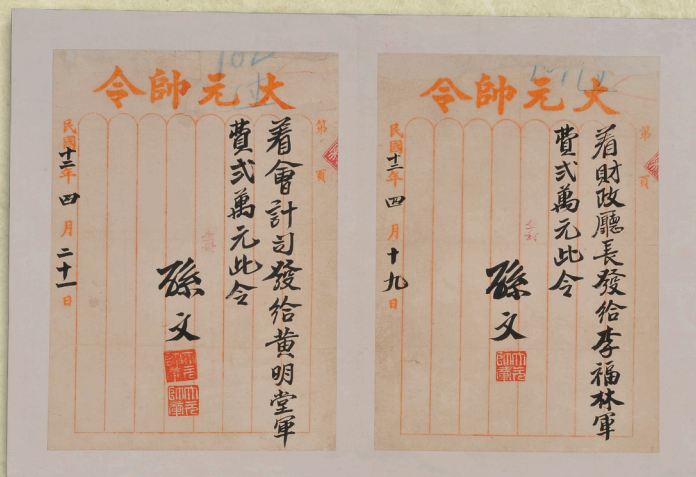 大元帥令
第 頁
着財政廳長發給李福林軍
費弍萬元此令
孫文
民國十二年四月十九日
大元帥令
第 頁
着會計司發給黃明堂軍
費弍萬元此令
孫文
民國十二年四月二十一日